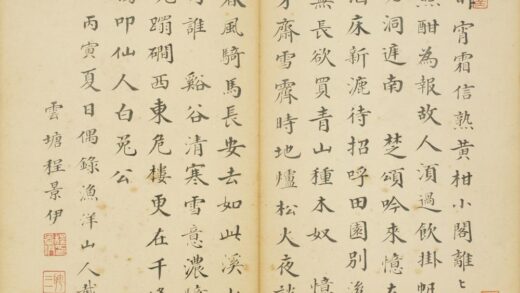 宵霜信熟黄柑小閣離〻
酣為報故人湏過飲掛帆
洞遲南 楚頌吟來憶
床新漉待招呼田園別後
無長欲買青山種木奴 憶
齋雪霽時地爐松火夜談
春風騎馬長安去如此溪山
誰 谿谷清寒雪意濃
躡磵西東危樓更在千峰
為叩仙人白兔公
丙寅夏日偶錄漁洋山人截
雲塘程景伊